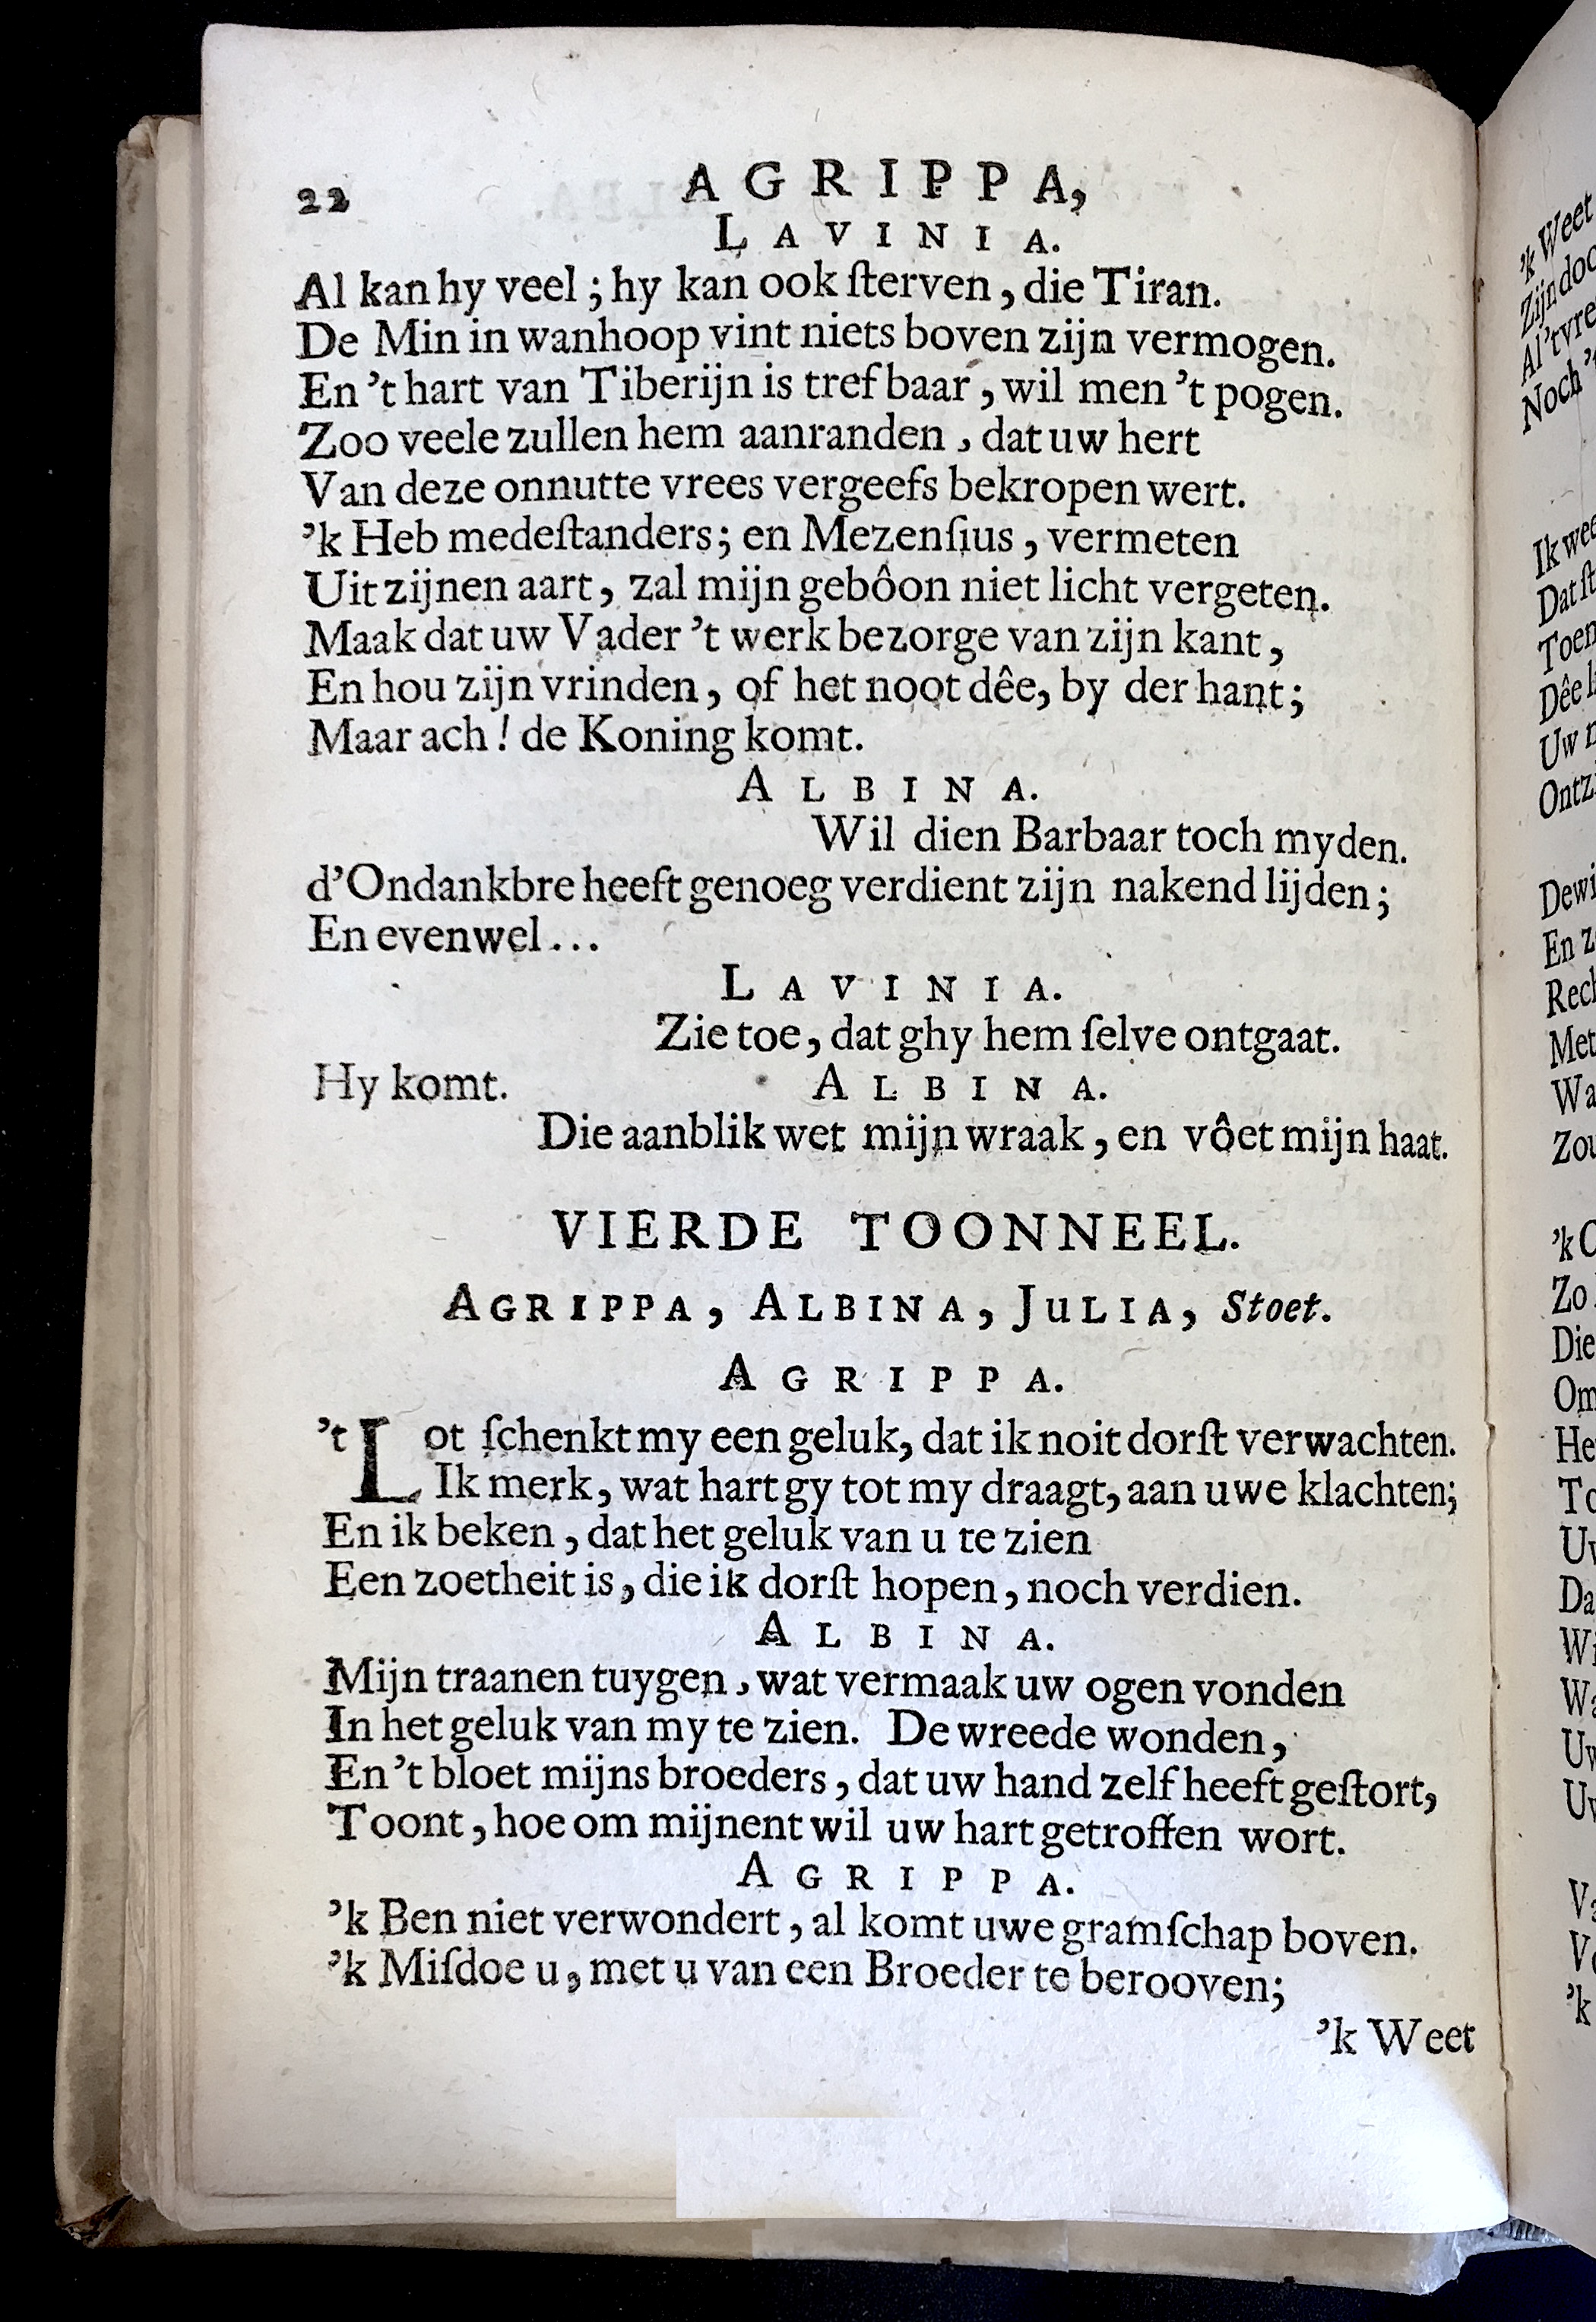 22 AGRIPPA,
LAVINIA.
Al kan hy veel; hy kan ook ſterven, die Tiran.
De Min in wanhoop vint niets boven zijn vermogen.
En 't hart van Tiberijn is trefbaar, wil men 't pogen.
Zoo veele zullen hem aanranden, dat uw hert
Van deze onnutte vrees vergeefs bekropen wert.
'k Heb medeſtanders; en Mezenſius, vermeten
Uit zijnen aart, zal mijn gebôon niet licht vergeten.
Maak dat uw Vader 't werk bezorge van zijn kant,
En hou zijn vrinden, of het noot dêe, by der hant;
Maar ach! de Koning komt.
ALBINA.
Wil dien Barbaar toch myden.
d'Ondankbre heeft genoeg verdient zijn nakend lijden;
En evenwel...
LAVINIA.
Zie toe, dat ghy hem ſelve ontgaat.
Hy komt. ALBINA.
Die aanblik wet mijn wraak, en vôet mijn haat.
VIERDE TOONNEEL.
AGRIPPA, ALBINA, JULIA, Stoet.
AGRIPPA.
't Lot ſchenkt my een geluk, dat ik noit dorſt verwachten.
Ik merk, wat hart gy tot my draagt, aan uwe klachten;
En ik beken, dat het geluk van u te zien
Een zoetheit is, die ik dorſt hopen, noch verdien.
ALBINA.
Mijn traanen tuygen, wat vermaak uw ogen vonden
In het geluk van my te zien. De wreede wonden,
En 't bloet mijns broeders, dat uw hand zelf heeft geſtort,
Toont, hoe om mijnent wil uw hart getroffen wort.
AGRIPPA.
'k Ben niet verwondert, al komt uwe gramſchap boven.
'k Miſdoe u, met u van een Broeder te berooven;
'k Weet
'k Weet
Noch
Ik
Toen
Uw
En
Met
Zo
Die